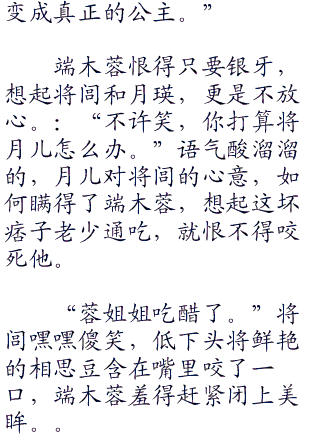 变成真正的公主。”
端木蓉恨得只要银牙，
想起将闾和月瑛，更是不放
心。：“不许笑，你打算将
月儿怎么办。”语气酸溜溜
的，月儿对将闾的心意，如
何瞒得了端木蓉，想起这坏
痞子老少通吃，就恨不得咬
死他。
“蓉姐姐吃醋了。”将
闾嘿嘿傻笑，低下头将鲜艳
的相思豆含在嘴里咬了一
口，端木蓉羞得赶紧闭上美
眸。。